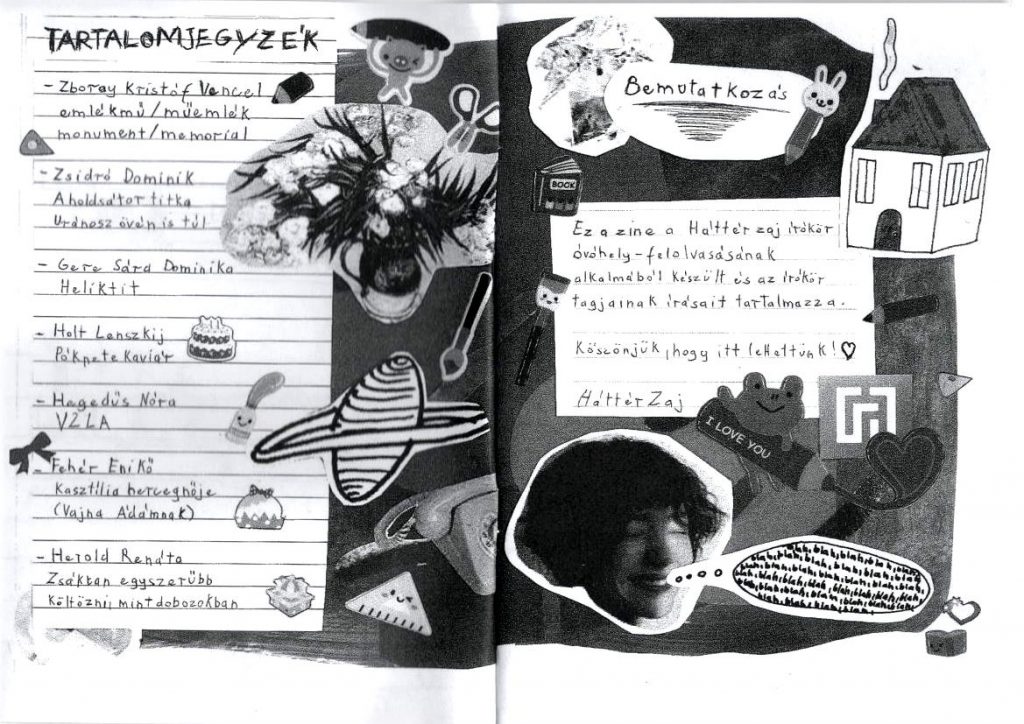 TARTALOMJEGYZÉK
- Zboray Kristóf Vencel
emlékmű/műemlék
monument/memorial
- Zsidró Dominik
A holdsátor titka
Uránosz övén is túl
- Gere Sára Dominika
Heliktit
- Holt Lenszkij
Pókpete Kaviár
- Hegedűs Nóra
VZLA
- Fehér Enikő
Kasztília hercegnője
(Vajna Ádámnak)
- Herold Renáta
Zsákban egyszerűbb
költözni, mint dobozokban
Bemutatkozás
BOOK
Ez a zine a Háttér zaj írókör
óvóhely-felolvasásának
alkalmából készült és az írókör
tagjainak írásait tartalmazza.
Köszönjük, hogy itt lehettünk!
Háttér Zaj
I LOVE YOU
blah, blah, blah, blah,
blah, blah, blah, blah, blah, blah
blah, blah, blah, blah, blah, blah
blah, blah, blah, blah, blah, blah
blah, blah, blah, blah, blah, blah,
blah, blah, blah, blah,